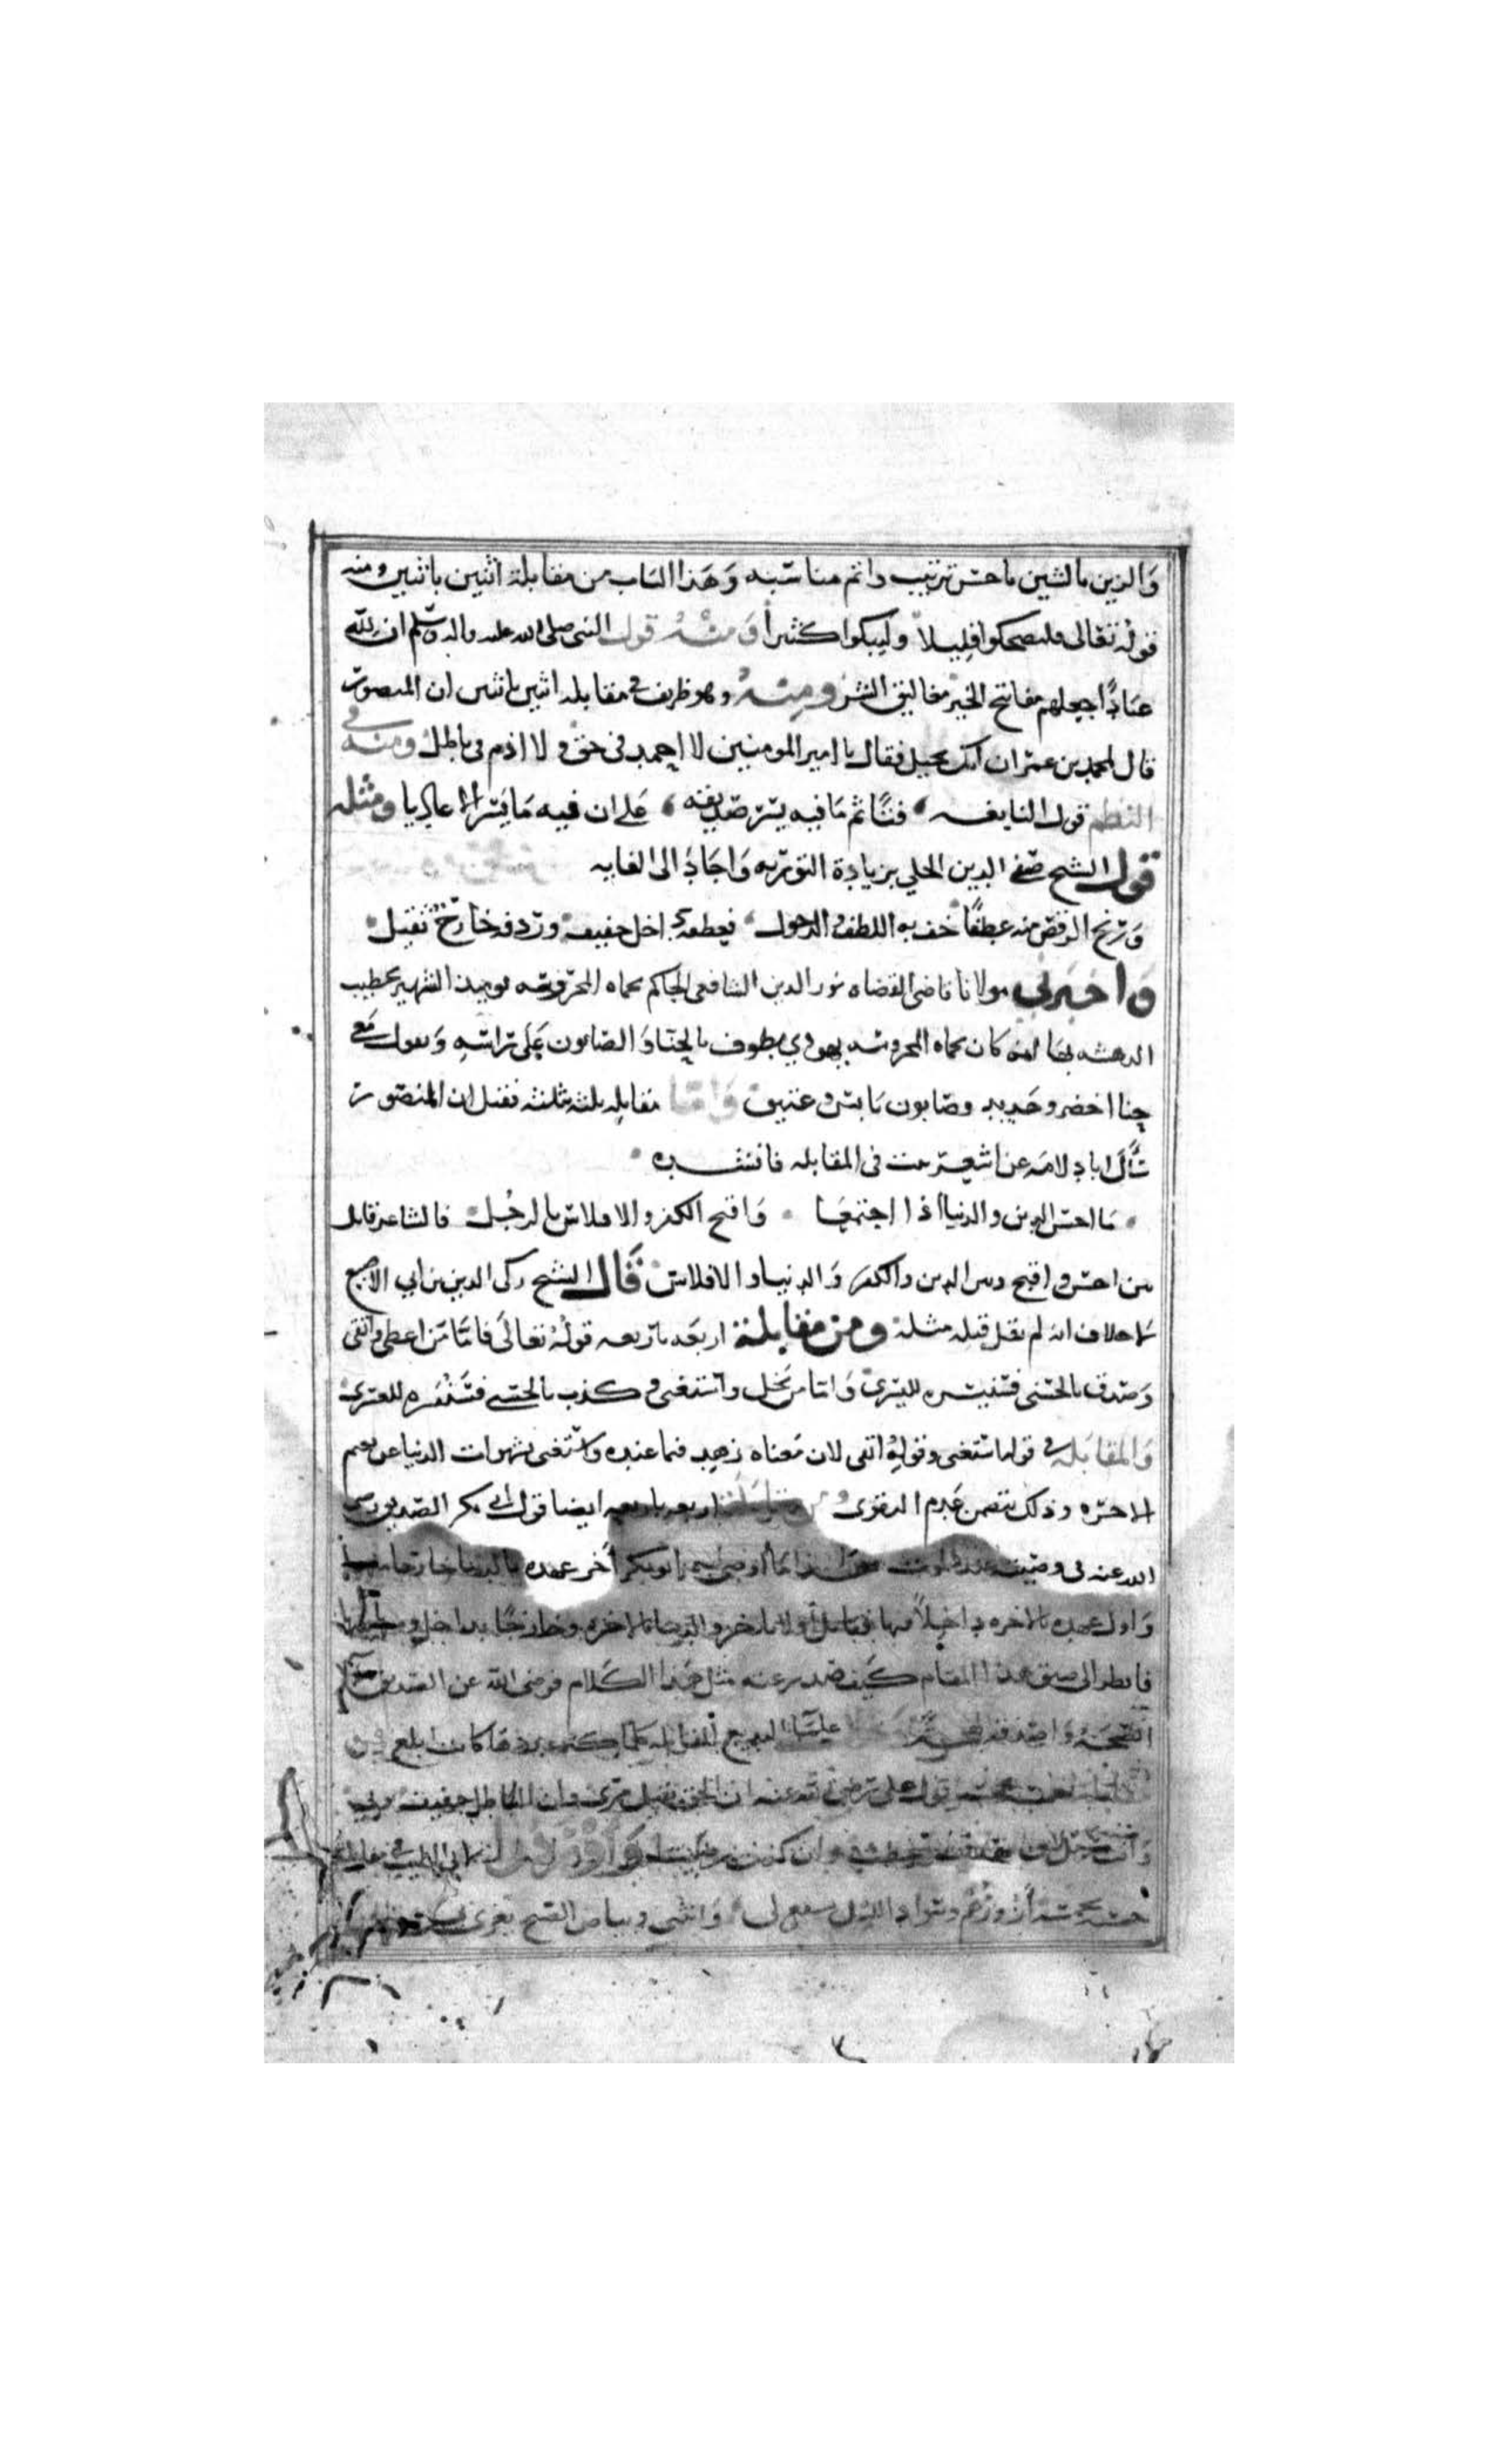 والزين بالشين باحسن ترتيب واتم مناسبه وهذا الباب من مقابلة اثنين باثنين ومنه
قوله تعالى فليضحكوا قليلا وليبكوا كثيرا ومنه قول النبي صلى الله عليه واله وسلم ان لله
عبادا جعلهم مفاتيح الخير مغاليق الشر ومنه وهو ظريف في مقابله اثنين باثنين ان المنصور
قال لمحمد بن عمران انك بخيل فقال يا امير المومنين لا اجمد في حق ولا اذوب في باطل ومنه في
النظم قول النابغه فتًا تم ما فيه يسر صديقه على ان فيه ما يسر الاعاديا ومثله
قول الشيخ صفي الدين الحلي بزيادة التوريه واجاد الى الغايه
ورنح الرقص منه عطفًا خف به اللطف والدخول فعطفه داخل خفيف وردفه خارج ثقيل
واخبرني مولانا قاضي القضاه نور الدين الشافعي الحاكم بحماه المحروسه يوميذ الشهير بخطيب
الدهشه بها انه كان بحماه المحروسه يهودي يطوف بالحنا والصابون على راسه ويقول معي
حنا اخضر وجديد وصابون يابس وعتيق واما مقابله ثلثه بثلثه فقيل ان المنصور
سأل ابا دلامه عن اشعر بيت في المقابله فانشده
ما احسن الدين والدنيا اذا اجتمعا واقبح الكفر والافلاس بالرجل فالشاعر قابل
بين احسن واقبح وبين الدين والكفر والدنيا والافلاس قال الشيخ زكي الدين بن ابي الاصبع
لا خلاف انه لم يقل قبله مثله ومن مقابلة اربعه باربعه قوله تعالى فاما من اعطى واتقى
وصدق بالحسنى فسنيسره لليسرى واما من بخل واستغنى وكذب بالحسنى فسنيسره للعسرى
والمقابله في قوله استغنى وقوله اتقى لان معناه زهد فيما عنده واستغنى بشهوات الدنيا عن نعيم
الاخره وذلك يتضمن عدم التقوى ومن مقابلة اربعه باربعه ايضا قول ابي بكر الصديق رضي
الله عنه في وصيته عند الموت هذا ما اوصى به ابو بكر اخر عهده بالدنيا خارجا منها
واول عهده بالاخره داخلاً فيها فقابل أولا باخر والدنيا بالاخره وخارجًا بداخل ومنها بفيها
فانظر الى ضيق هذا المقام كيف صدر عنه مثل هذا الكلام فرضي الله عن الصديق
علما البديع المقابله كلما كثر عددها كانت ابلغ فمن
قول علي رضي الله عنه ان الحق ثقيل مري وان الباطل خفيف وبي
وان كذبت رضيت لابي الطيب في مقابله
خمسه بخمسه أزورهم وسواد الليل يشفع لي وانثني وبياض الصبح يغري بي